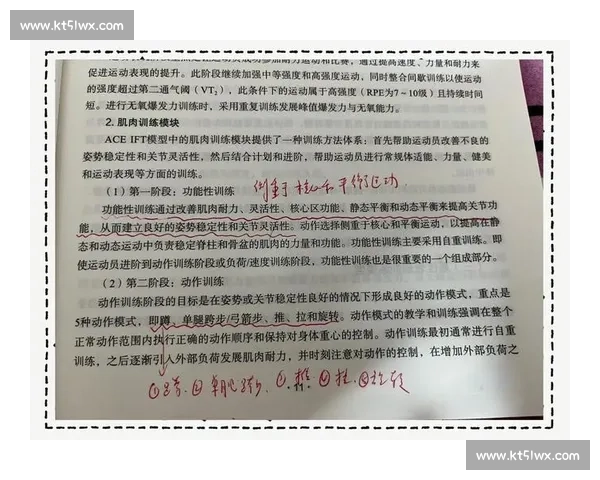 www.kt5lwx.com
促进运动表现的提升。此阶段继续加强中等强度和高强度运动，同时整合间歇训练以使运动
的强度超过第二通气阈（VT₂），此条件下的运动属于高强度（RPE为7～10级）且持续时间
短。进行无氧爆发力训练时，采用重复训练发展峰值爆发力与无氧能力。
2. 肌肉训练模块
ACE IFT模型中的肌肉训练模块提供了一种训练方法体系：首先帮助运动员改善不良的
姿势稳定性和关节灵活性，然后结合计划和进阶，帮助运动员进行常规体适能、力量、健美
和运动表现等方面的训练。
（1）第一阶段：功能性训练
侧重于核心和平衡运动
功能性训练通过改善肌肉耐力、灵活性、核心区功能、静态平衡和动态平衡来提高关节功
能，从而建立良好的姿势稳定性和关节灵活性。动作选择侧重于核心和平衡运动，以提高在静
态和动态运动中负责稳定脊柱和骨盆的肌肉的力量和功能。功能性训练主要采用自重训练。即
使运动员进阶到动作训练阶段或负荷/速度训练阶段，功能性训练也是很重要的一个组成部分。
（2）第二阶段：动作训练
动作训练阶段的目标是在姿势或关节稳定性良好的情况下形成良好的动作模式，重点是
5种动作模式，即蹲、单腿跨步/弓箭步、推、拉和旋转。动作模式的教学和训练强调在整个
正常动作范围内执行正确的动作顺序和保持对身体重心的控制。动作训练最初通常进行自重
训练，之后逐渐引入外部负荷发展肌肉耐力，并时刻注意对动作的控制，在增加外部负荷之
www.kt5lwx.com